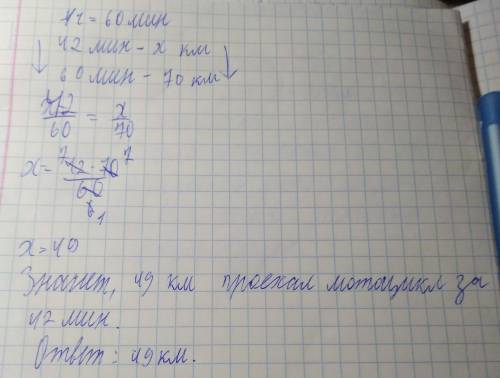 1ч = 60 мин
↓ 42 мин - x км ↓
60 мин - 70 км
42/60 = x/70
x = 42 · 70 / 60
7 7
6 1
x = 49
Значит, 49 км проехал мотоцикл за
42 мин.
Ответ: 49 км.